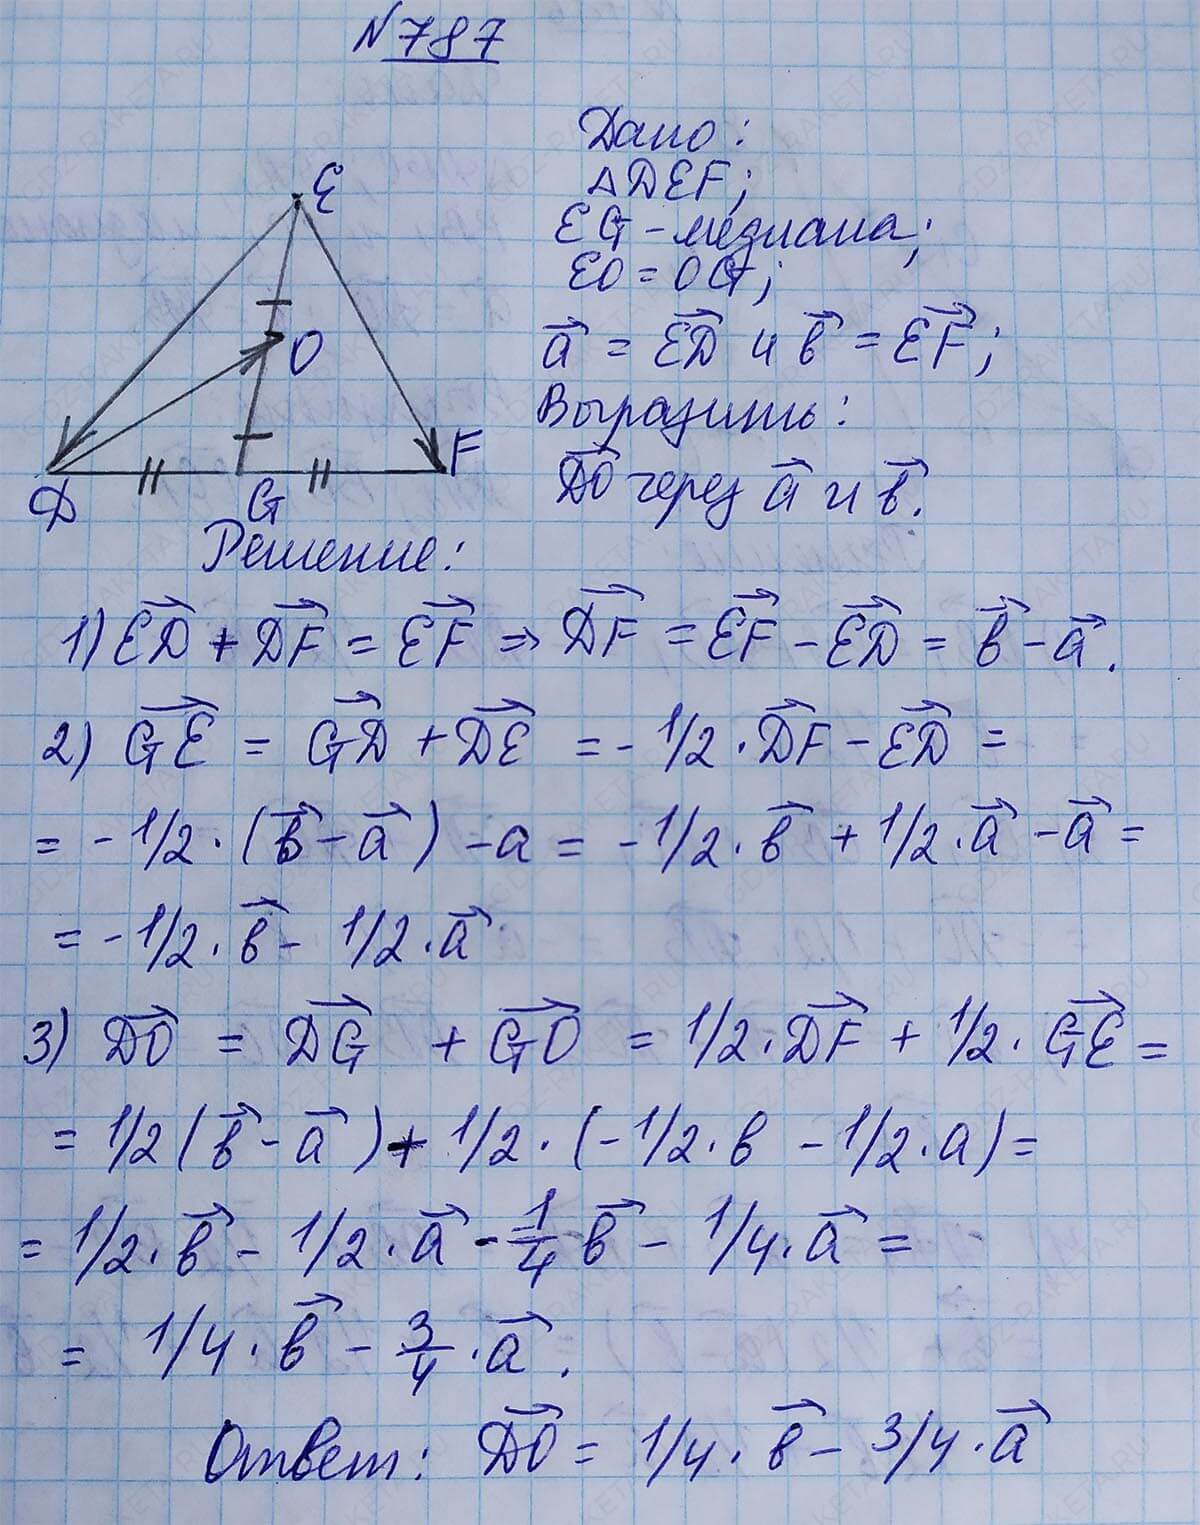 №787
Дано:
△DEF;
EG - медиана;
EO = OG;
a⃗ = ED⃗ и b⃗ = EF⃗;
Выразить:
DO⃗ через a⃗ и b⃗.
E
O
D
G
F
Решение:
1) ED⃗ + DF⃗ = EF⃗ ⇒ DF⃗ = EF⃗ - ED⃗ = b⃗ - a⃗.
2) GE⃗ = GD⃗ + DE⃗ = - 1/2 · DF⃗ - ED⃗ =
= - 1/2 · (b⃗ - a⃗) - a = - 1/2 · b⃗ + 1/2 · a⃗ - a⃗ =
= - 1/2 · b⃗ - 1/2 · a⃗
3) DO⃗ = DG⃗ + GO⃗ = 1/2 · DF⃗ + 1/2 · GE⃗ =
= 1/2 (b⃗ - a⃗) + 1/2 · (- 1/2 · b - 1/2 · a) =
= 1/2 · b⃗ - 1/2 · a⃗ - 1/4 b⃗ - 1/4 · a⃗ =
= 1/4 · b⃗ - 3/4 · a⃗.
Ответ: DO⃗ = 1/4 · b⃗ - 3/4 · a⃗